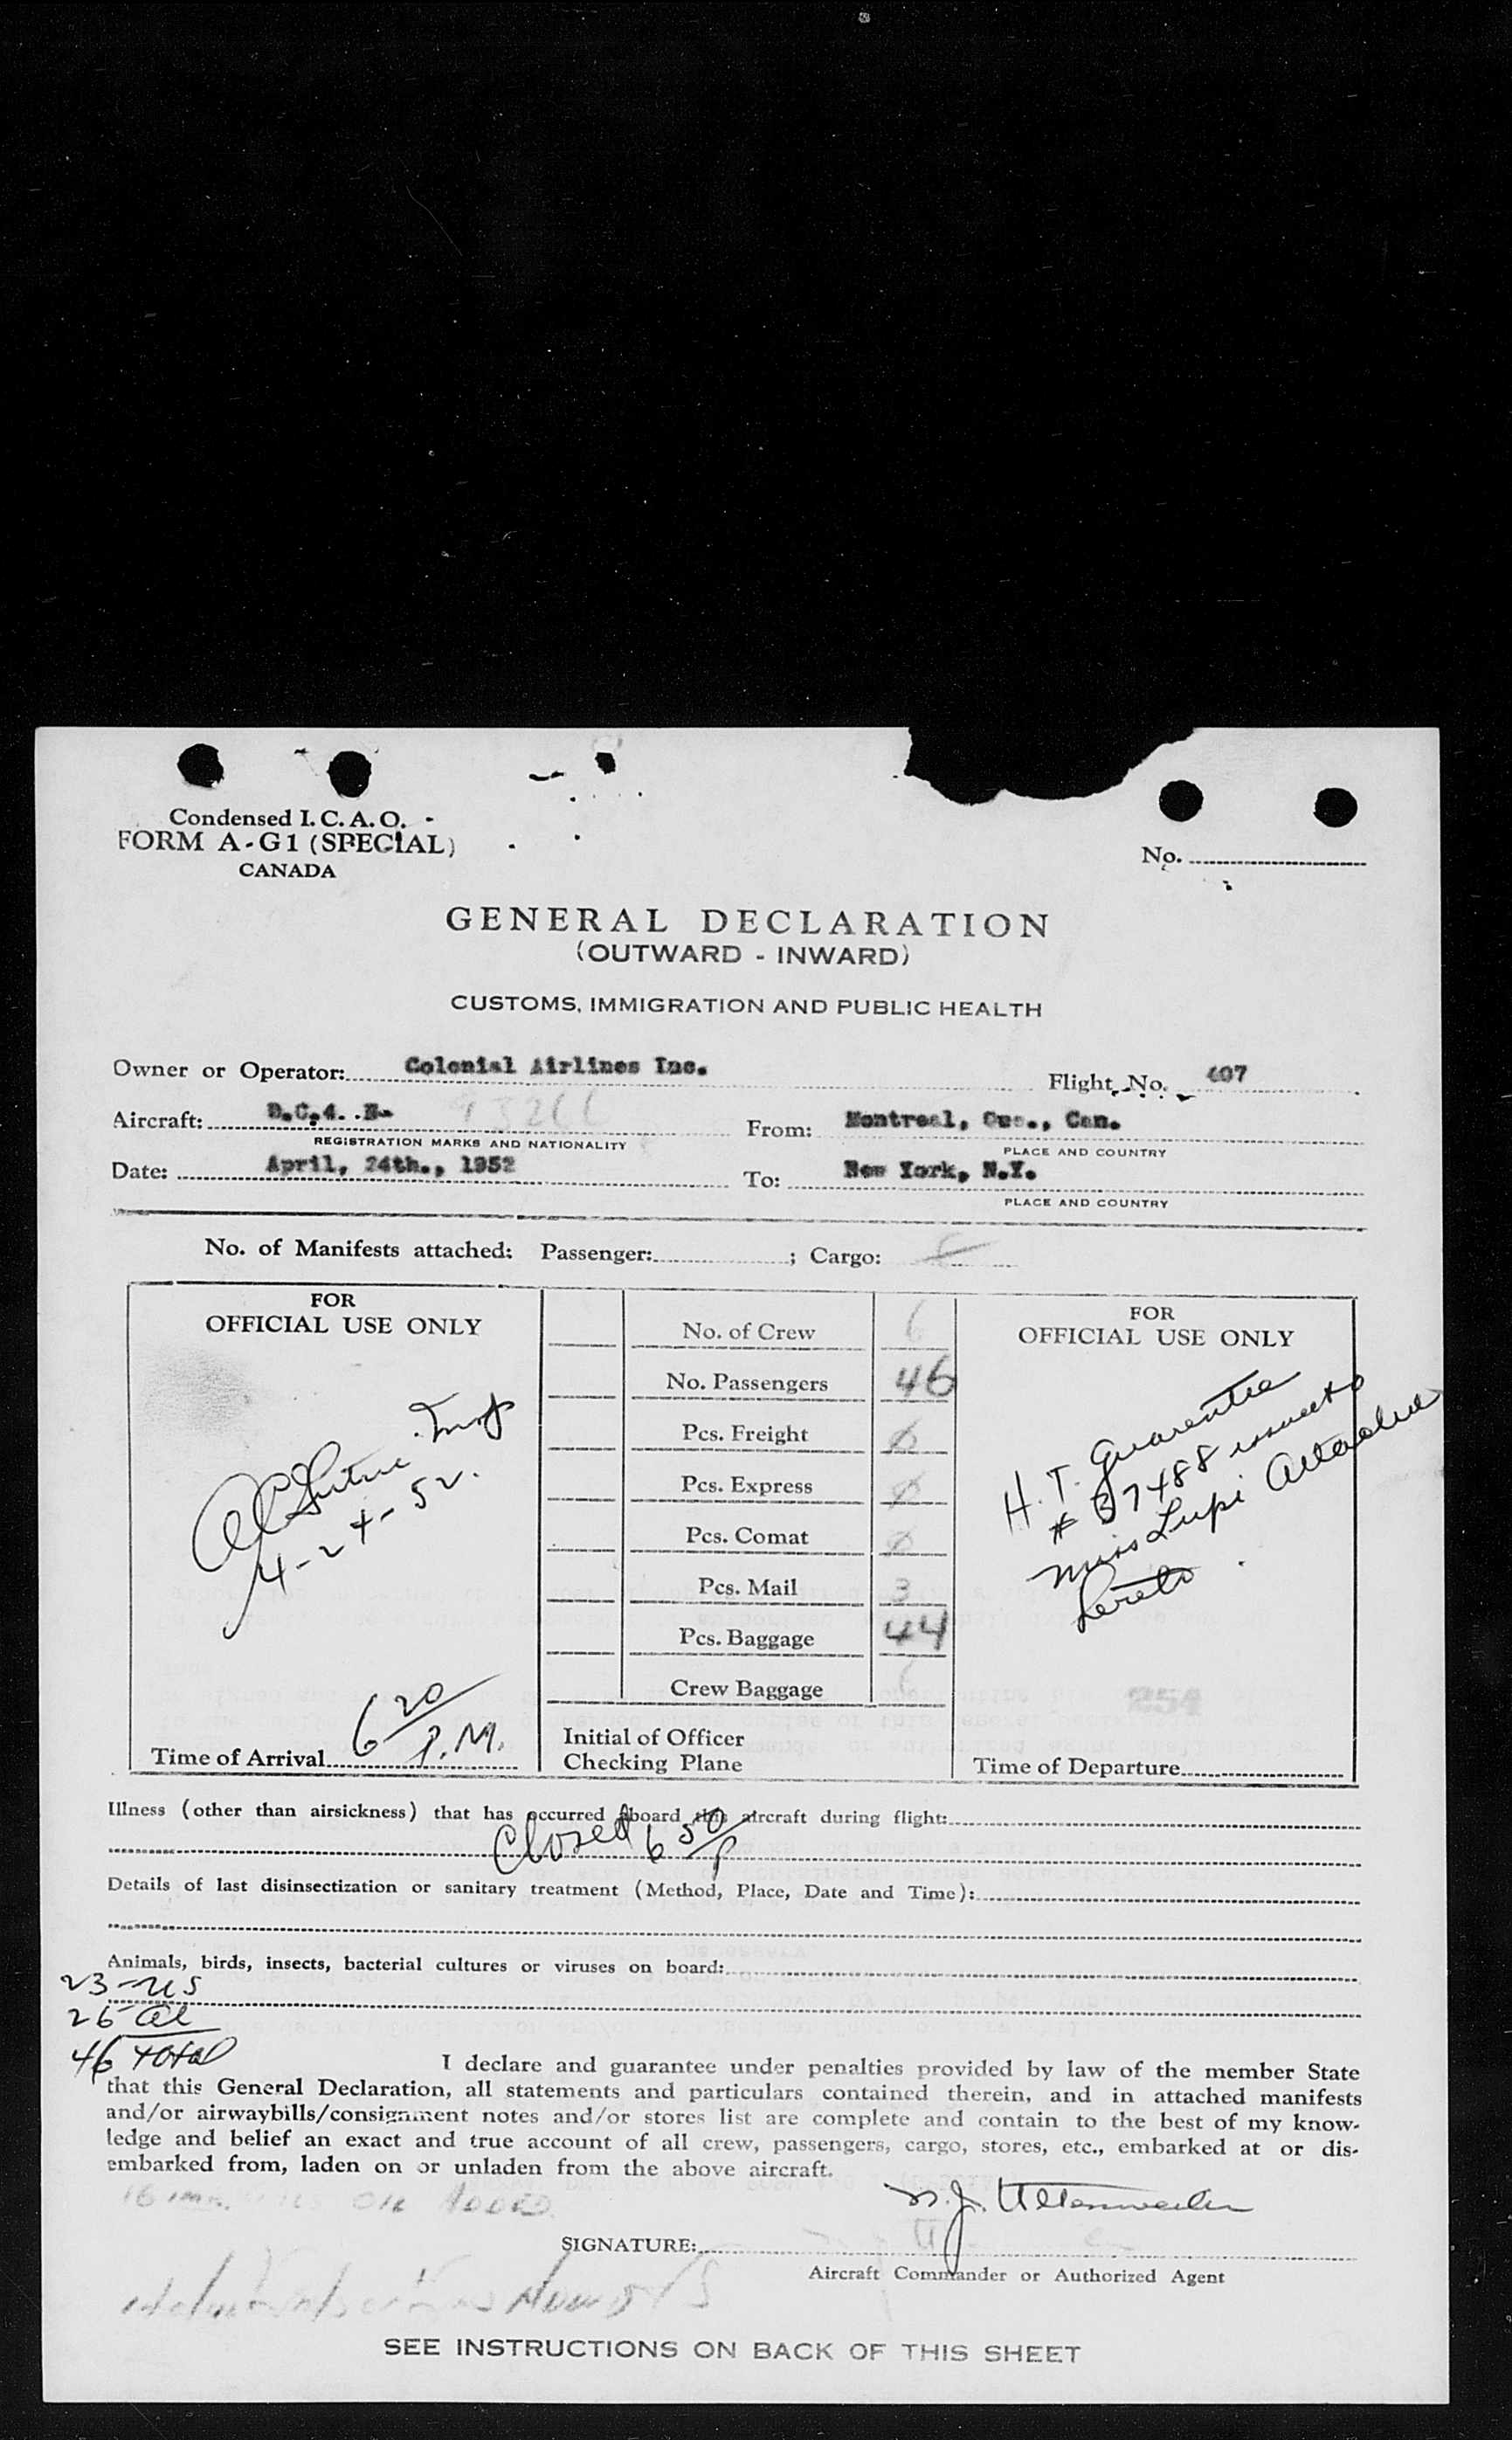 Condensed I. C. A. O.
FORM A-G1 (SPECIAL)
CANADA
No.
GENERAL DECLARATION
(OUTWARD - INWARD)
CUSTOMS, IMMIGRATION AND PUBLIC HEALTH
Owner or Operator: Colonial Airlines Inc. Flight No. 407
Aircraft: D.C.4. N- From: Montreal, Que., Can.
REGISTRATION MARKS AND NATIONALITY PLACE AND COUNTRY
Date: April, 24th., 1952 To: New York, N.Y.
PLACE AND COUNTRY
No. of Manifests attached: Passenger: ; Cargo:
FOR
OFFICIAL USE ONLY
4-24-52.
Time of Arrival 6 20 P.M.
No. of Crew
No. Passengers 46
Pcs. Freight
Pcs. Express
Pcs. Comat
Pcs. Mail 3
Pcs. Baggage 44
Crew Baggage
Initial of Officer
Checking Plane
FOR
OFFICIAL USE ONLY
H. T. Guarantee
Miss Lupi
254
Time of Departure
Illness (other than airsickness) that has occurred aboard this aircraft during flight:
Closed 6 50 P
Details of last disinsectization or sanitary treatment (Method, Place, Date and Time):
Animals, birds, insects, bacterial cultures or viruses on board:
23-US
46 total
I declare and guarantee under penalties provided by law of the member State
that this General Declaration, all statements and particulars contained therein, and in attached manifests
and/or airwaybills/consignment notes and/or stores list are complete and contain to the best of my know-
ledge and belief an exact and true account of all crew, passengers, cargo, stores, etc., embarked at or dis-
embarked from, laden on or unladen from the above aircraft.
SIGNATURE:
Aircraft Commander or Authorized Agent
SEE INSTRUCTIONS ON BACK OF THIS SHEET